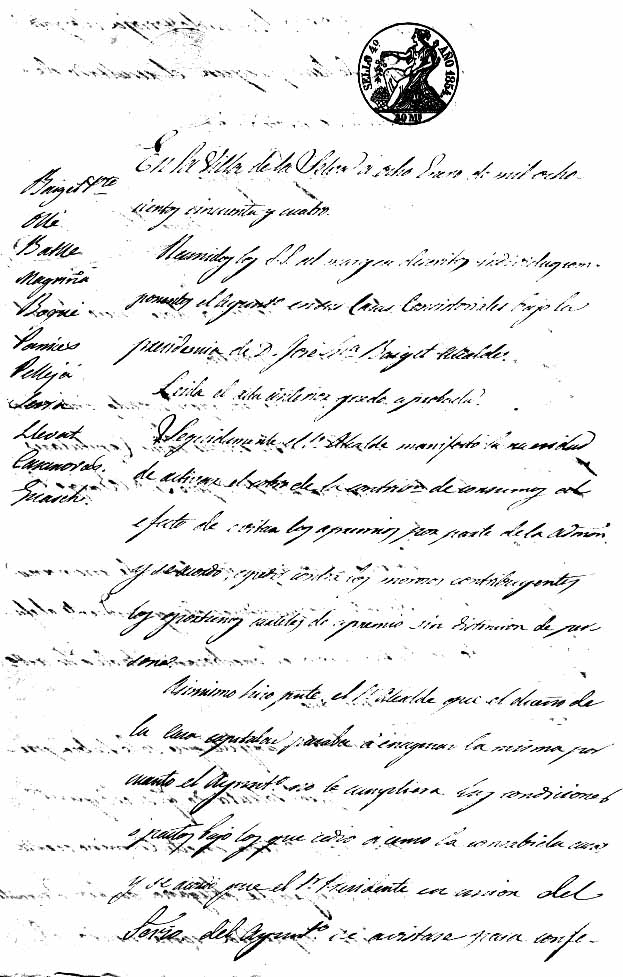 SELLO 4º AÑO 1854.
40 Ms
En la Villa de la Selva a ocho Enero de mil ocho-
cientos cincuenta y cuatro.
Baiget Pte
Ollé
Batlle
Magriñá
Bogué
Pamies
Pellejá
Serra
Llevat
Casanovas.
Guasch.
Reunidos los S.S. al margen descritos individuos com-
ponentes el Ayuntº en sus Casas Consistoriales bajo la
presidencia de D. José Mª Baiget Alcalde.
Leida el acta anterior quedó aprobada.
Seguidamente el Sr Alcalde manifestó la necesidad
de activar el cobro de la contribn de consumos al
efecto de evitar los apremios por parte de la Admon
y se acordó espedir contra los morosos contribuyentes
los oportunos de apremio sin distincion de per-
sona.
Asimismo hizo pnte el Sr Alcalde que el dueño de
la Casa capitular pasaba á enagenar la misma por
cuanto el Ayuntº no le cumpliera las condiciones
o pactos bajo los que cedió á censo la consabida casa
y se que el Sr Presidente en union del
Srio del Ayuntº se avistase para confe-